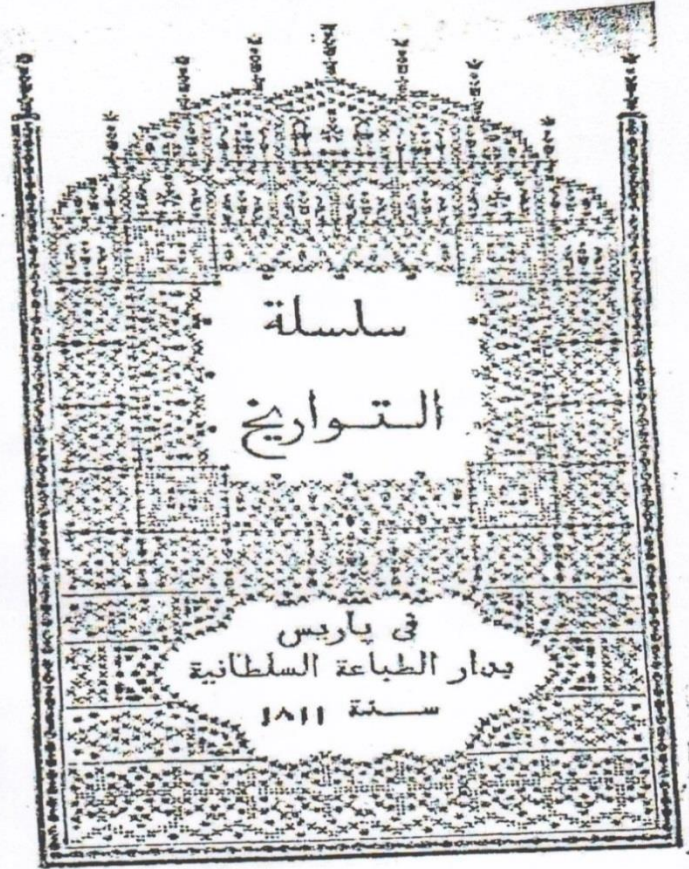 سلسلة
التواريخ
في پاريس
بدار الطباعة السلطانية
سنة ١٨١١